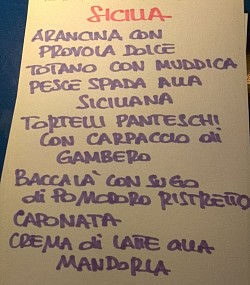 SICILIA
ARANCINA CON
PROVOLA DOLCE
TOTANO CON MUDDICA
PESCE SPADA ALLA
SICILIANA
TORTELLI PANTESCHI
CON CARPACCIO di
GAMBERO
BACCALA' CON SUGO
di POMODORO RISTRETTO
CAPONATA
CREMA di LATTE ALLA
MANDORLA